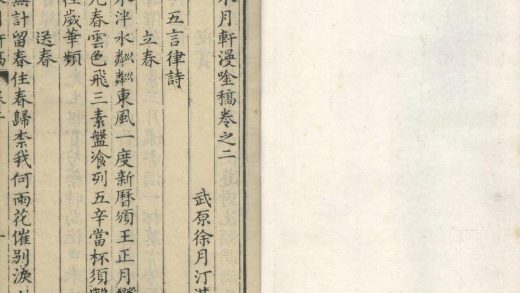 月軒漫唫稿卷之二
武原徐月汀
五言律詩
立春
泮水粼粼東風一度新曆頒王正月
春雲色飛三素盤飧列五辛當杯須
歲華頻
送春
無計留春住春歸柰我何雨花催別淚